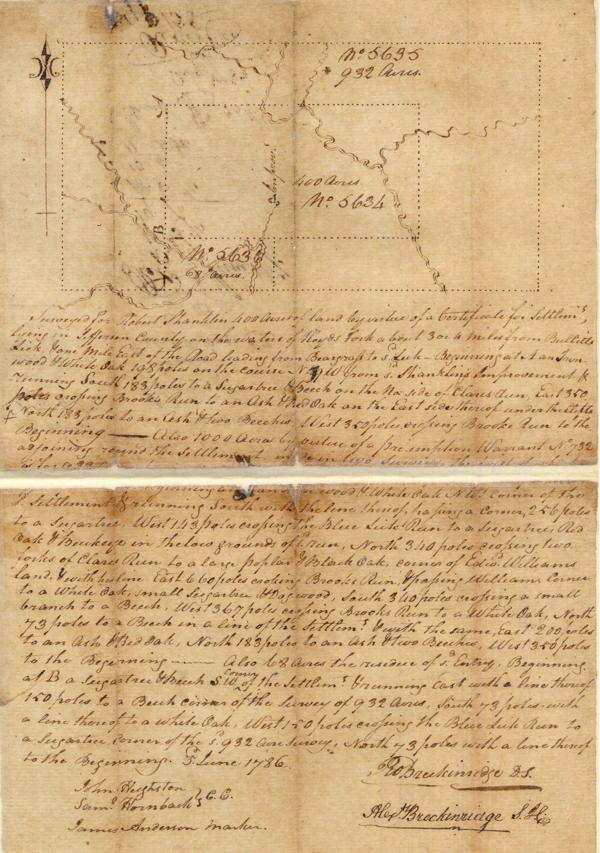 No 5635
932 Acres.
A
Improvt
400 Acres
No. 5634
B
No. 563
68 Acres.
Surveyed for Robert Shanklin 400 Acres of land by virtue of a Certificate for Settlemt
lying in Jefferson County on the waters of Floyds Fork about 3 or 4 Miles from Bullitts
Lick & one Mile East of the Road leading from Beargrass to sd Lick – Beginning at A an Iron
wood & White Oak 198 poles on the course N W from sd Shanklins Improvement &
running South 183 poles to a Sugartree & Beech on the No. side of Clares Run, East 350
poles crossing Brooks Run to an Ash & Red Oak on the East side thereof under the
North 183 poles to an Ash & two Beeches, West 350 poles crossing Brooks Run to the
Beginning —— Also 1000 Acres by virtue of a Preemption Warrant No. 732
adjoining round the Settlement in two Surveys
wood & White Oak N.W. Corner of the
sd Settlement & running South with the line thereof, passing a Corner, 256 poles
to a Sugartree, West 143 poles crossing the Blue Lick Run to a Sugartree, Red
Oak & Buckeye in the low grounds of sd run, North 340 poles crossing two
forks of Clares Run to a large poplar & Black Oak, corner of Edwd Williams
land, & with his line East 660 poles crossing Brooks Run, & passing Williams Corner
to a White Oak, small Sugartree & Dogwood, South 340 poles crossing a small
branch to a Beech, West 367 poles crossing Brooks Run to a White Oak, North
73 poles to a Beech in a line of the Settlemt & with the same, East 200 poles
to an Ash & Red Oak, North 183 poles to an Ash & two Beeches, West 350 poles
to the Beginning —— Also 68 Acres the residue of sd Entry, Beginning
at B a Sugartree & Beech S.W. Corner of the Settlemt & running East with a line thereof
150 poles to a Beech corner of the Survey of 932 Acres, South 73 poles with
a line thereof to a White Oak, West 150 poles crossing the Blue Lick Run to
a Sugartree corner of the sd 932 Acre Survey, North 73 poles with a line thereof
to the Beginning. 5 June 1786.
Ro Breckinridge D.S.
John Heighston
Saml Hornback } C.C.
Alexr Breckinridge S.J.C.
James Anderson Marker.